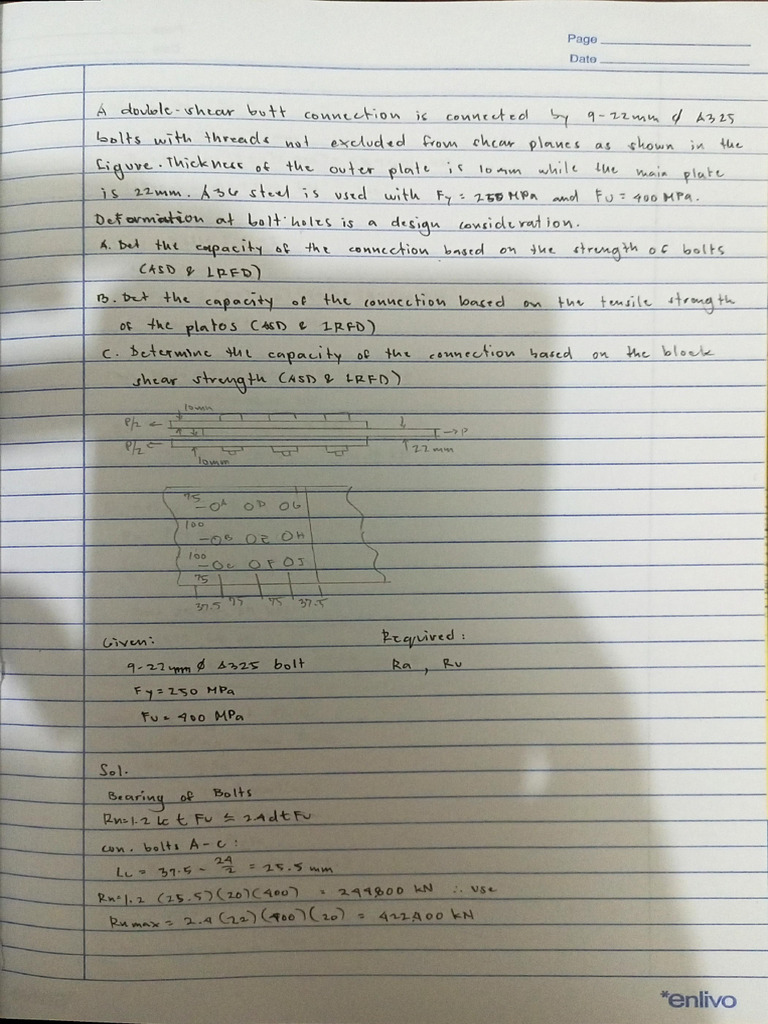 Page
Date
A double-shear butt connection is connected by 9-22mm ϕ A325
bolts with threads not excluded from shear planes as shown in the
figure. Thickness of the outer plate is 10mm while the main plate
is 22mm. A36 steel is used with Fy = 250 MPa and Fu = 400 MPa.
Deformation at bolt holes is a design consideration.
A. Det the capacity of the connection based on the strength of bolts
(ASD & LRFD)
B. Det the capacity of the connection based on the tensile strength
of the plates (ASD & LRFD)
C. Determine the capacity of the connection based on the block
shear strength (ASD & LRFD)
10mm
P/2 ←
→P
P/2 ←
10mm
22mm
75
A D G
100
B E H
100
C F J
75
37.5 75 75 37.5
Given: Required:
9-22mm ϕ A325 bolt Ra, Ru
Fy = 250 MPa
Fu = 400 MPa
Sol.
Bearing of Bolts
Rn=1.2 Lc t Fu ≤ 2.4dtFu
con. bolts A-C:
Lc = 37.5 - 24/2 = 25.5 mm
Rn=1.2 (25.5)(20)(400) = 244800 kN ∴ use
Rn max = 2.4(22)(400)(20) = 422400 kN
*enlivo